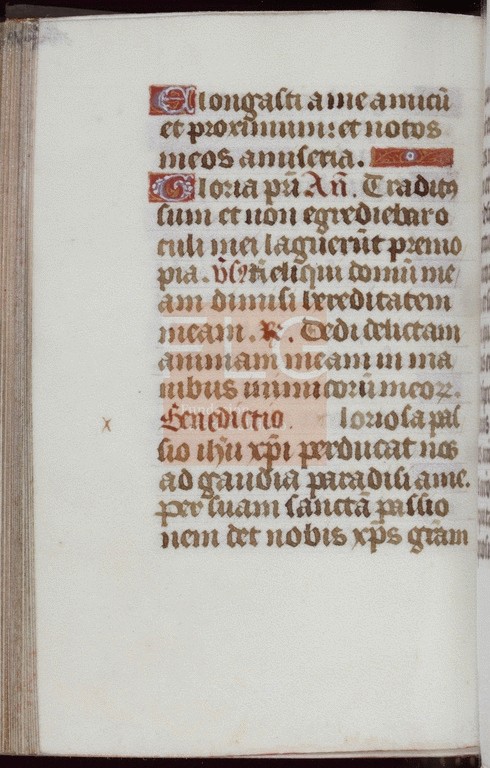 Elongasti a me amicū
et proximum: et notos
meos a miseria.
Gloria pr̄i An̄. Traditus
sum et non egrediebar o
culi mei lāguerūt pre mo
pia. v̄sꝰ Reliqui domū me
am dimisi hereditatem
meam. R. Dedi dilectam
animam meam in ma
nibus inimicorū meoꝝ.
x Benedictio. loriosa pas
sio ih̄u xp̄i perducat nos
ad gaudia paradisi ame.
per suam sanctā passio
nem det nobis xp̄s grām
FLG